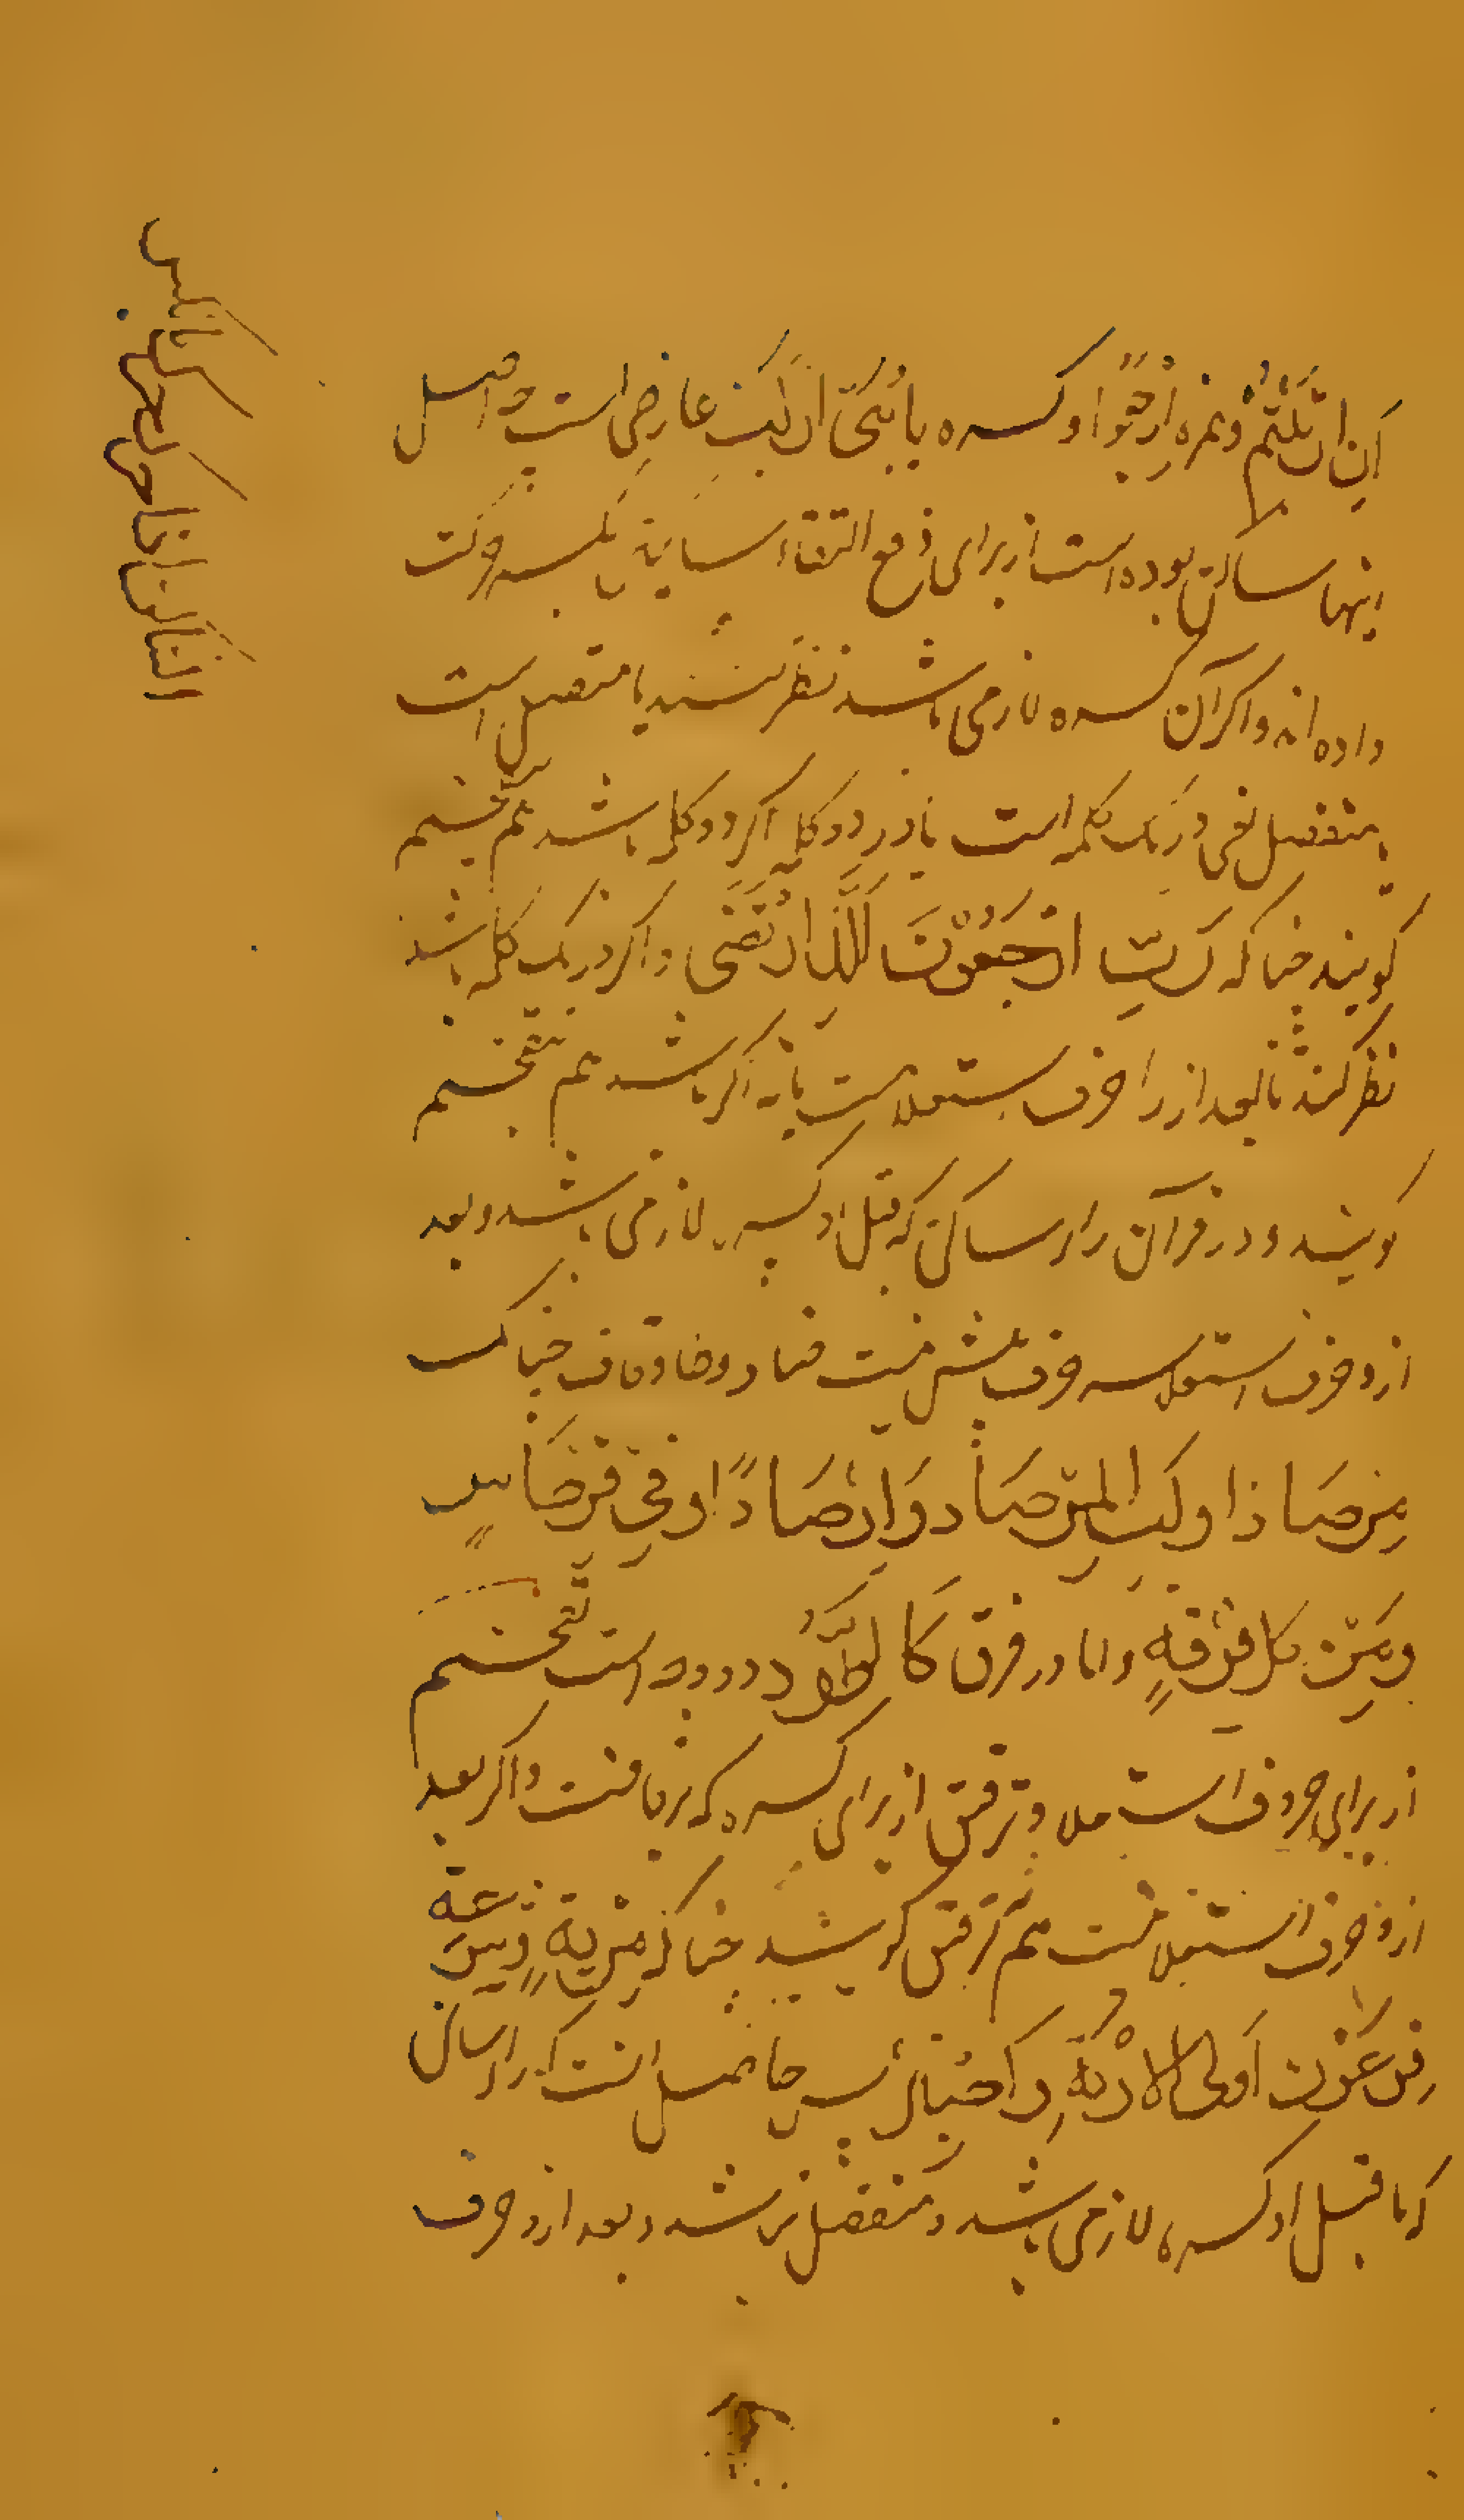 اَنِ ان تَلَثَّم و همزه اِرْجِعُوْا و کسره یا بُنَیَّ ارْکَبْ عارضی است چه اصل
اینها ساکن بوده است از برای دفع التقاء ساکنین بکسره حرکت
داده اند و اکر آن کسره لازمی باشد نظر کنند یا متصل است
یا منفصل یعنی در یک کلمه است یا در دو کلمه اکر دو کلمه باشد هم تفخیم
کویند چنانکه رَبِّ ارْجِعُوْنَ لِمَنِ ارْتَضٰی و اکر در یک کلمه باشد
نظر کنند تا بعد از را حرف استعلاست یا نه اکر باشد هم تفخیم
کویند و در قرآن را ساکن که قبل او کسره لازمی باشد و بعد
ازو حرف استعلا سه حرف بیش نیست صاد و طا و قاف چنانکه
مِرْصَادًا و لَبِالْمِرْصَادِ وَ اِرْصَادًا و فِیْ قِرْطَاسٍ
و مِنْ کُلِّ فِرْقَةٍ و اما در فرق کَالطَّوْدِ دو وجه است تفخیم
از برای حروف استعلا و ترقیق از برای کسره که در قافست و اکر بعد
ازو حرف استعلا نیست هم ترقیق کویند چنانکه مِرْیَةٍ و شِرْعَةً
فِرْعَوْنَ اُولِی الْاِرْبَةِ وَاصْبِرْ پس حاصل انست که را ساکن
که ما قبل او کسره لازمی باشد و منفصل نباشد و بعد ازو حرف